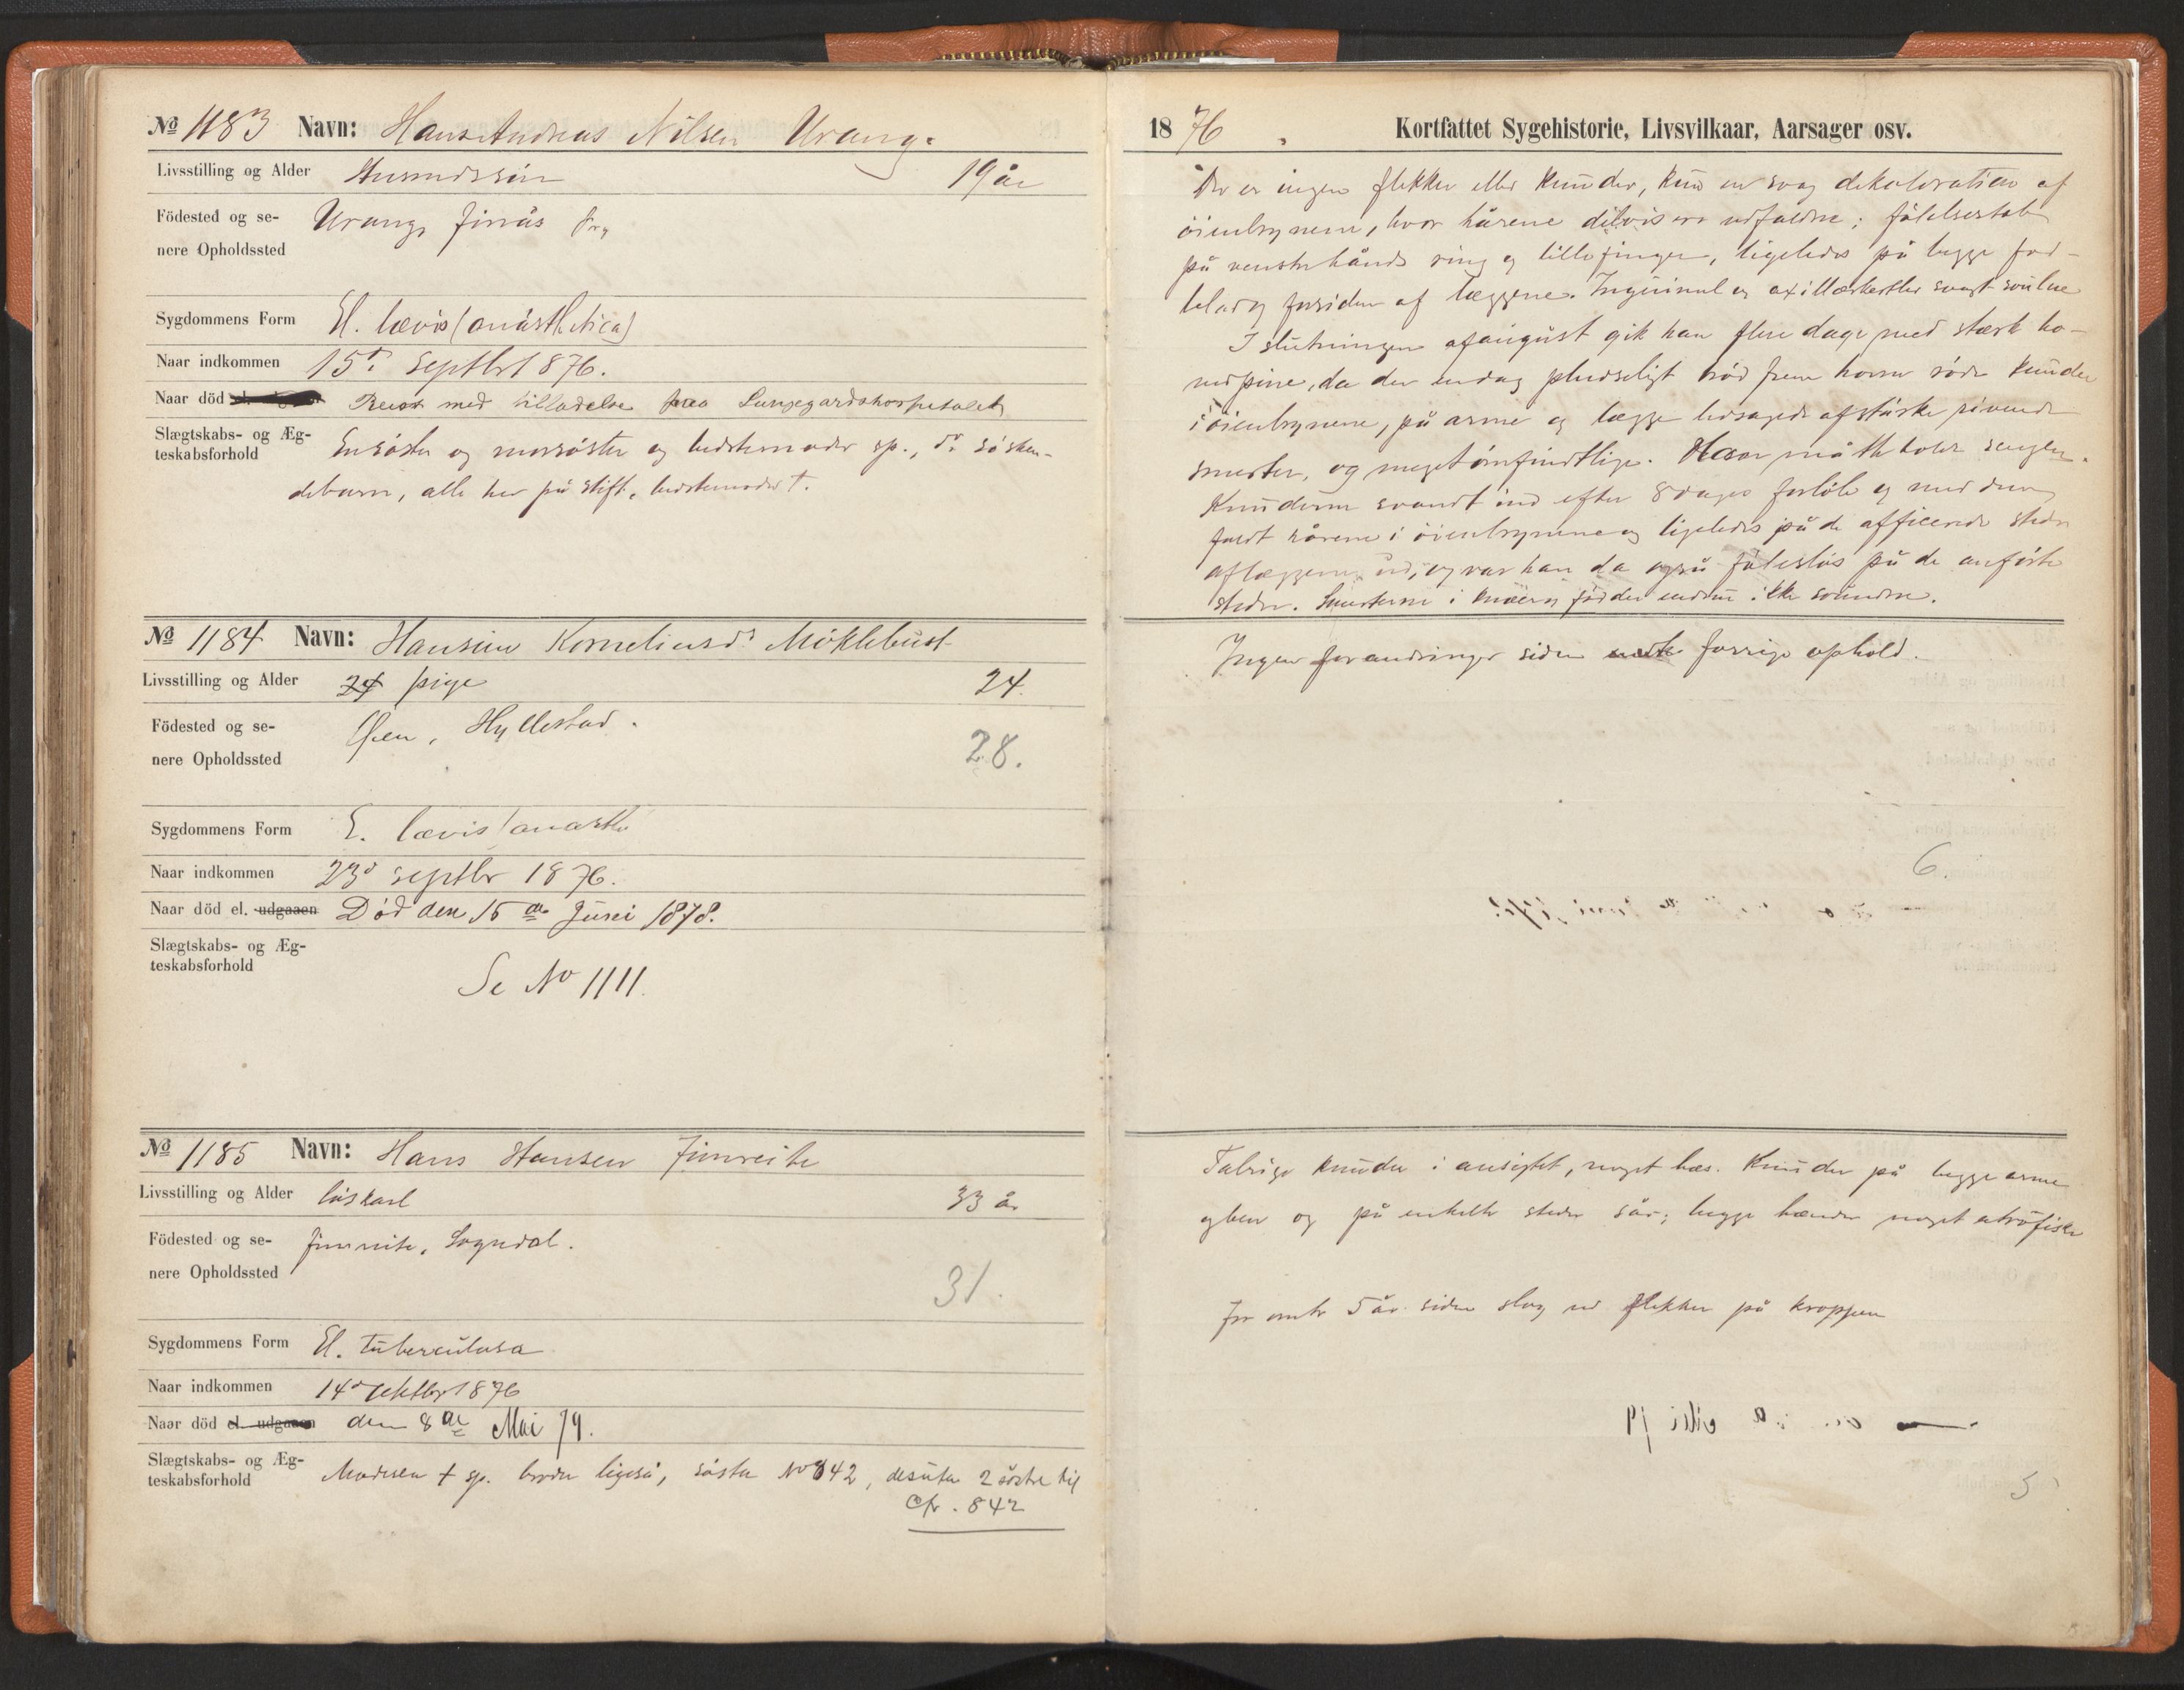 No 1183 Navn: Hans Andreas Nilsen Urang.
Livsstilling og Alder Husmdssøn 19 år
Födested og se-
nere Opholdssted Urang, Jinås
Sygdommens Form El. lævis (anästhetica)
Naar indkommen 15d. Septbr 1876.
Naar död Reist med tilladelse fra Lungegardshospitalet
Slægtskabs- og Æg-
teskabsforhold En söster og morsöster og bedstemoder sp., do. sösken-
debarn, alle her på stift. bedstemoder †.
No 1184 Navn: Hansine Korneliusdr Möklebust
Livsstilling og Alder 24 pige 24.
Födested og se-
nere Opholdssted Öen, Hyllestad. 28.
Sygdommens Form E. lævis/anästh
Naar indkommen 23d septbr 1876.
Naar död el. udgaaen Död den 15de Juni 1878.
Slægtskabs- og Æg-
teskabsforhold
Se No 1111.
No 1185 Navn: Hans Hansen Fimreite
Livsstilling og Alder löskarl 33 år
Födested og se-
nere Opholdssted Fimreite, Sogndal.
31.
Sygdommens Form El. tuberculosa
Naar indkommen 14d Oktbr 1876
Naar död el. udgaaen den 8de Mai 79.
Slægtskabs- og Æg-
teskabsforhold Moderen † sp. broder ligeså, söster No 842, desuten 2 söstre til
Cfr. 842
1876. Kortfattet Sygehistorie, Livsvilkaar, Aarsager osv.
Der er ingen flekker eller knuder, kun en svag dekoloration af
öienbrynene, hvor hårene delvis ere udfaldne; fölelsestab
på venstre hånds ring og lillefinger, ligeledes på begge fod-
blad og forsiden af læggene. Inguinal og axillærkjertler svagt svulne
I slutningen af august gik han flere dage med stærk ho-
vedpine, da der endag pludseligt bröd frem röde knuder
i öienbrynene, på arme og lægge ledsagede af stærke rivende
smerter, og meget ömfindtlige. Han måtte holde sengen.
Knuderne svandt ind efter 8 dages forlöb og med dem
faldt hårene i öienbrynene og ligeledes på de afficerede steder
af læggene ud, og var han da også föleslös på de anförte
steder. Smerterne i knæer og födder endnu ikke svundne.
Ingen forandringer siden forrige ophold.
6.
Talrige knuder i ansigtet, noget hæs. Knuder på begge arme
og ben og på enkelte steder sår; begge hænder noget atrofiske
For omtr 5 år siden slog ud flekker på kroppen
5